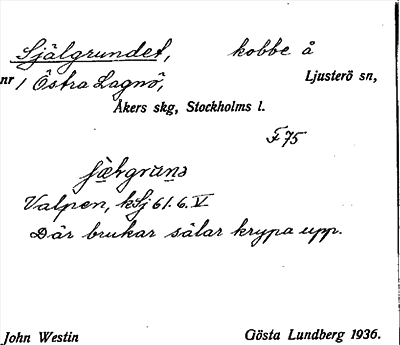 Själgrundet, kobbe å
nr 1 Östra Lagnö, Ljusterö sn,
Åkers skg, Stockholms l.
F 75
Valpen, kSj 61. 6. V.
Där brukar sälar krypa upp.
John Westin Gösta Lundberg 1936.